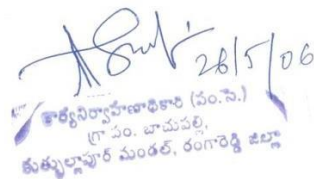 26/5/06
కార్యనిర్వాహణాధికారి (పం.సె.)
గ్రా పం. బాచుపల్లి,
కుత్బుల్లాపూర్ మండల్, రంగారెడ్డి జిల్లా